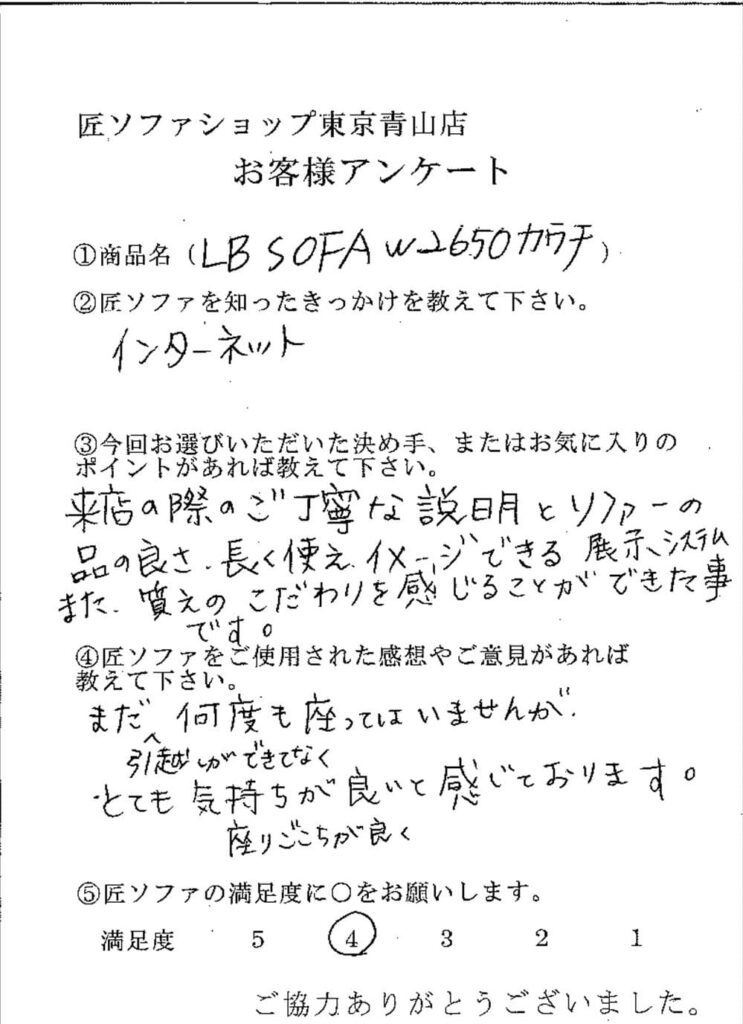 匠ソファショップ東京青山店
お客様アンケート
①商品名（LB SOFA W2650カウチ）
②匠ソファを知ったきっかけを教えて下さい。
インターネット
③今回お選びいただいた決め手、またはお気に入りの
ポイントがあれば教えて下さい。
来店の際のご丁寧な説明とソファーの
品の良さ、長く使えイメージできる展示、システム
また、質えのこだわりを感じることができた事
です。
④匠ソファをご使用された感想やご意見があれば
教えて下さい。
まだ 何度も座ってはいませんが、
引越しができてなく
とても気持ちが良いと感じております。
座りごこちが良く
⑤匠ソファの満足度に○をお願いします。
満足度 5 4 3 2 1
ご協力ありがとうございました。